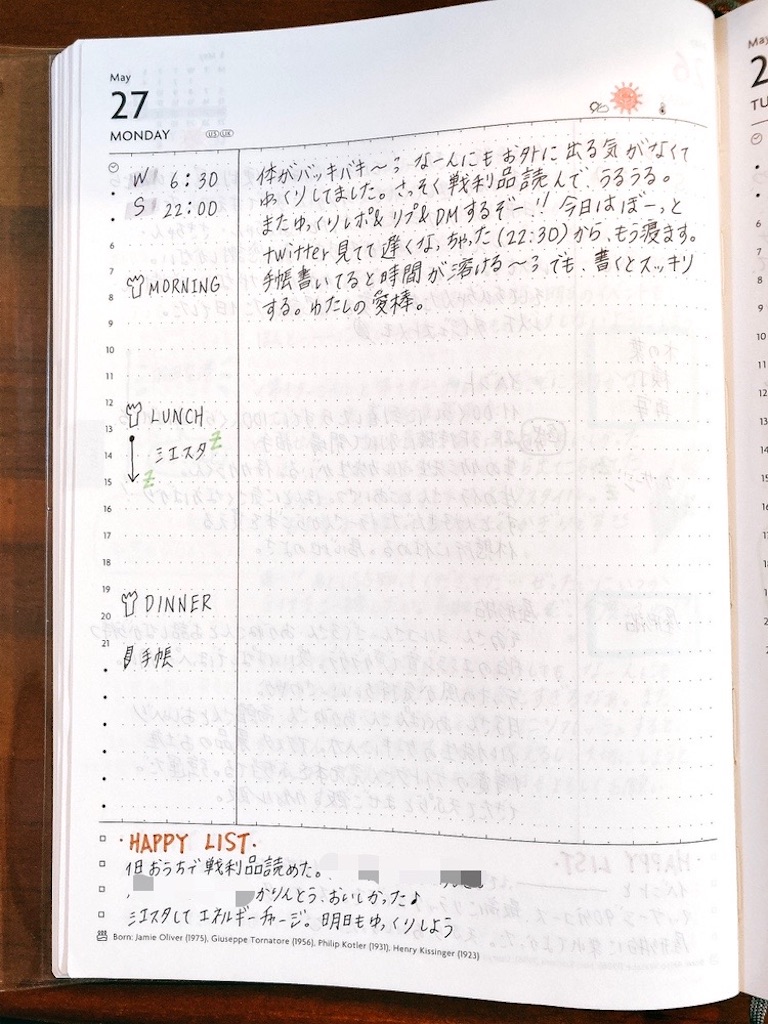 May
27
MONDAY
US UK
W 6:30
S 22:00
体がバッキバキ〜? なーんにもお外に出る気がなくて
ゆっくりしてました。さっそく戦利品読んで、うるうる。
またゆっくりレポ& リプ& DMするぞー!! 今日はぼーっと
twitter見てて遅くなっちゃった(22:30)から、もう寝ます。
手帳書いてると時間が溶ける〜? でも、書くとスッキリ
する。わたしの愛棒。
6
7
MORNING
8
9
10
11
12
LUNCH
13
シエスタ Z
14
Z
15
16
17
18
19
DINNER
20
21
手帳
・HAPPY LIST・
1日おうちで戦利品読めた。
かりんとう、おいしかった♪
シエスタしてエネルギーチャージ。明日もゆっくりしよう
Born: Jamie Oliver (1975), Giuseppe Tornatore (1956), Philip Kotler (1931), Henry Kissinger (1923)
May
2
TU